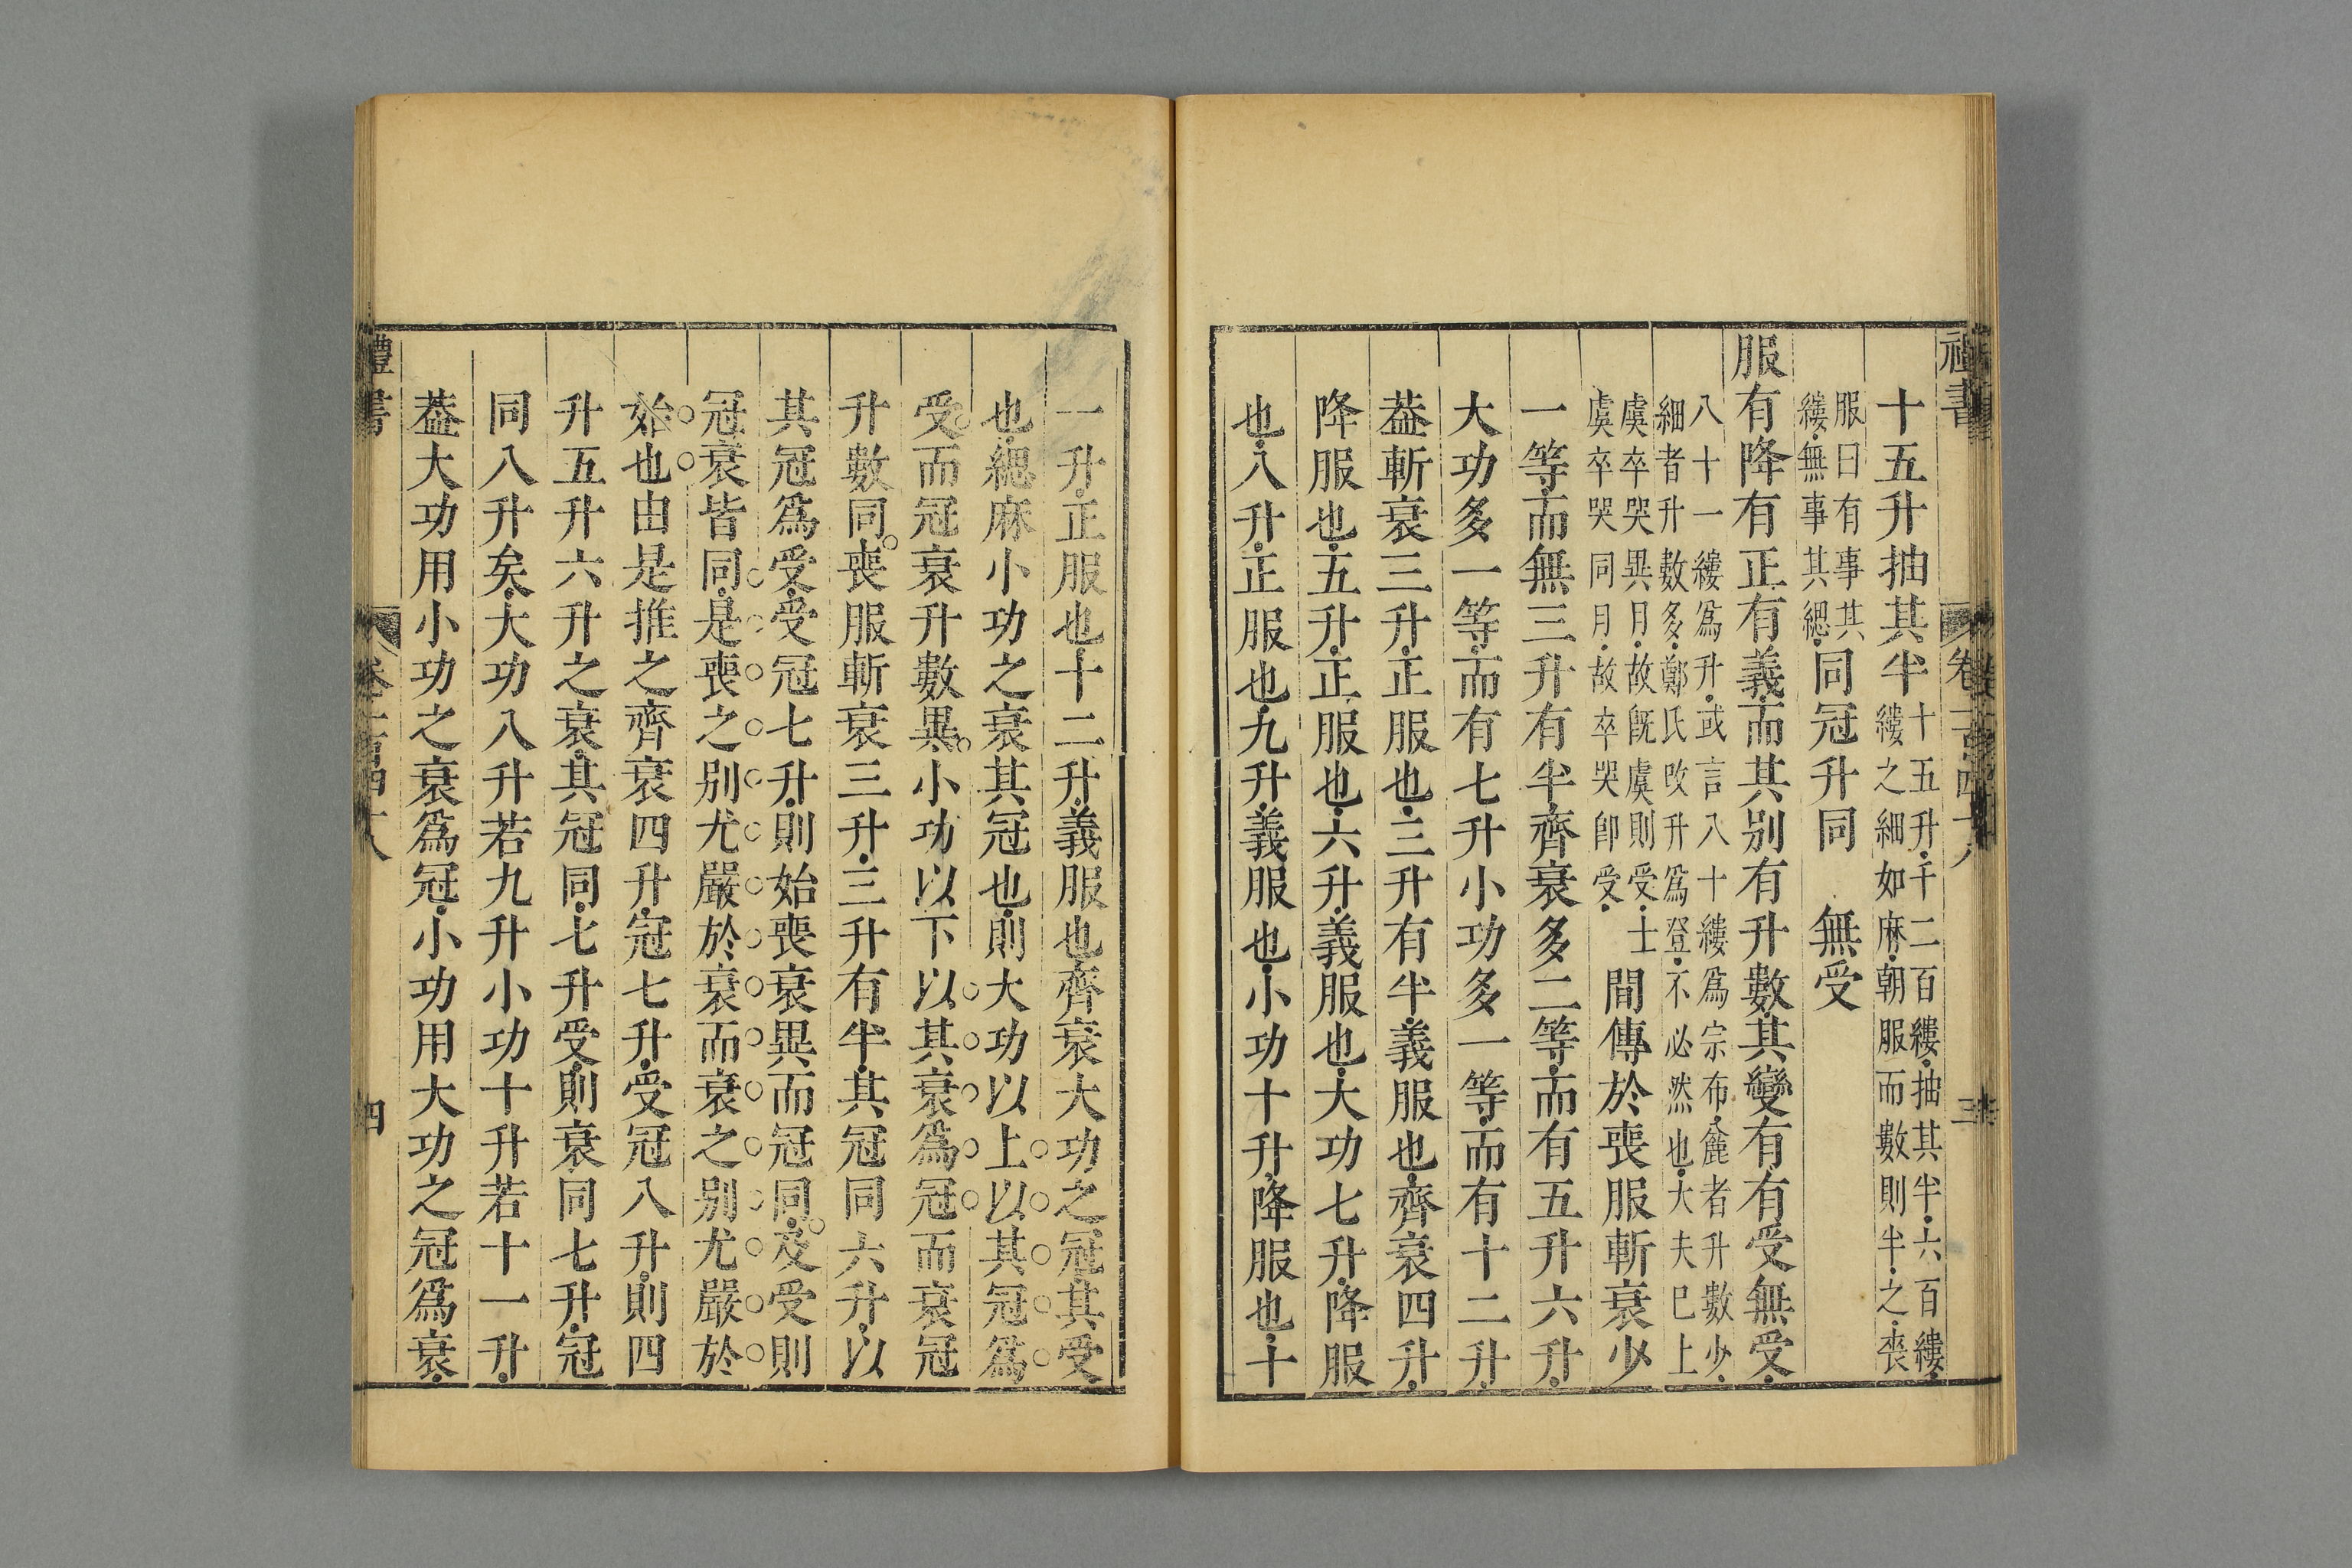 十五升抽其半
十五升千二百縷抽其半六百縷
縷之細如麻朝服而數則半之喪
服曰有事其
縷無事其緦
同冠升同　無受
服有降有正有義而其別有升數其變有有受無受
八十一縷爲升或言八十縷爲宗布麄者升數少
細者升數多鄭氏改升爲登不必然也大夫已上
虞卒哭異月故旣虞則受士
虞卒哭同月故卒哭卽受
間傳於喪服斬衰少
一等而無三升有半齊衰多二等而有五升六升
大功多一等而有七升小功多一等而有十二升
葢斬衰三升正服也三升有半義服也齊衰四升
降服也五升正服也六升義服也大功七升降服
也八升正服也九升義服也小功十升降服也十
一升正服也十二升義服也齊衰大功之冠其受
也緦麻小功之衰其冠也則大功以上以其冠爲
受而冠衰升數異小功以下以其衰爲冠而衰冠
升數同喪服斬衰三升三升有半其冠同六升以
其冠爲受受冠七升則始喪衰異而冠同及受則
冠衰皆同是喪之別尤嚴於衰而衰之別尤嚴於
始也由是推之齊衰四升冠七升受冠八升則四
升五升六升之衰其冠同七升受則衰同七升冠
同八升矣大功八升若九升小功十升若十一升
葢大功用小功之衰爲冠小功用大功之冠爲衰
禮書
四